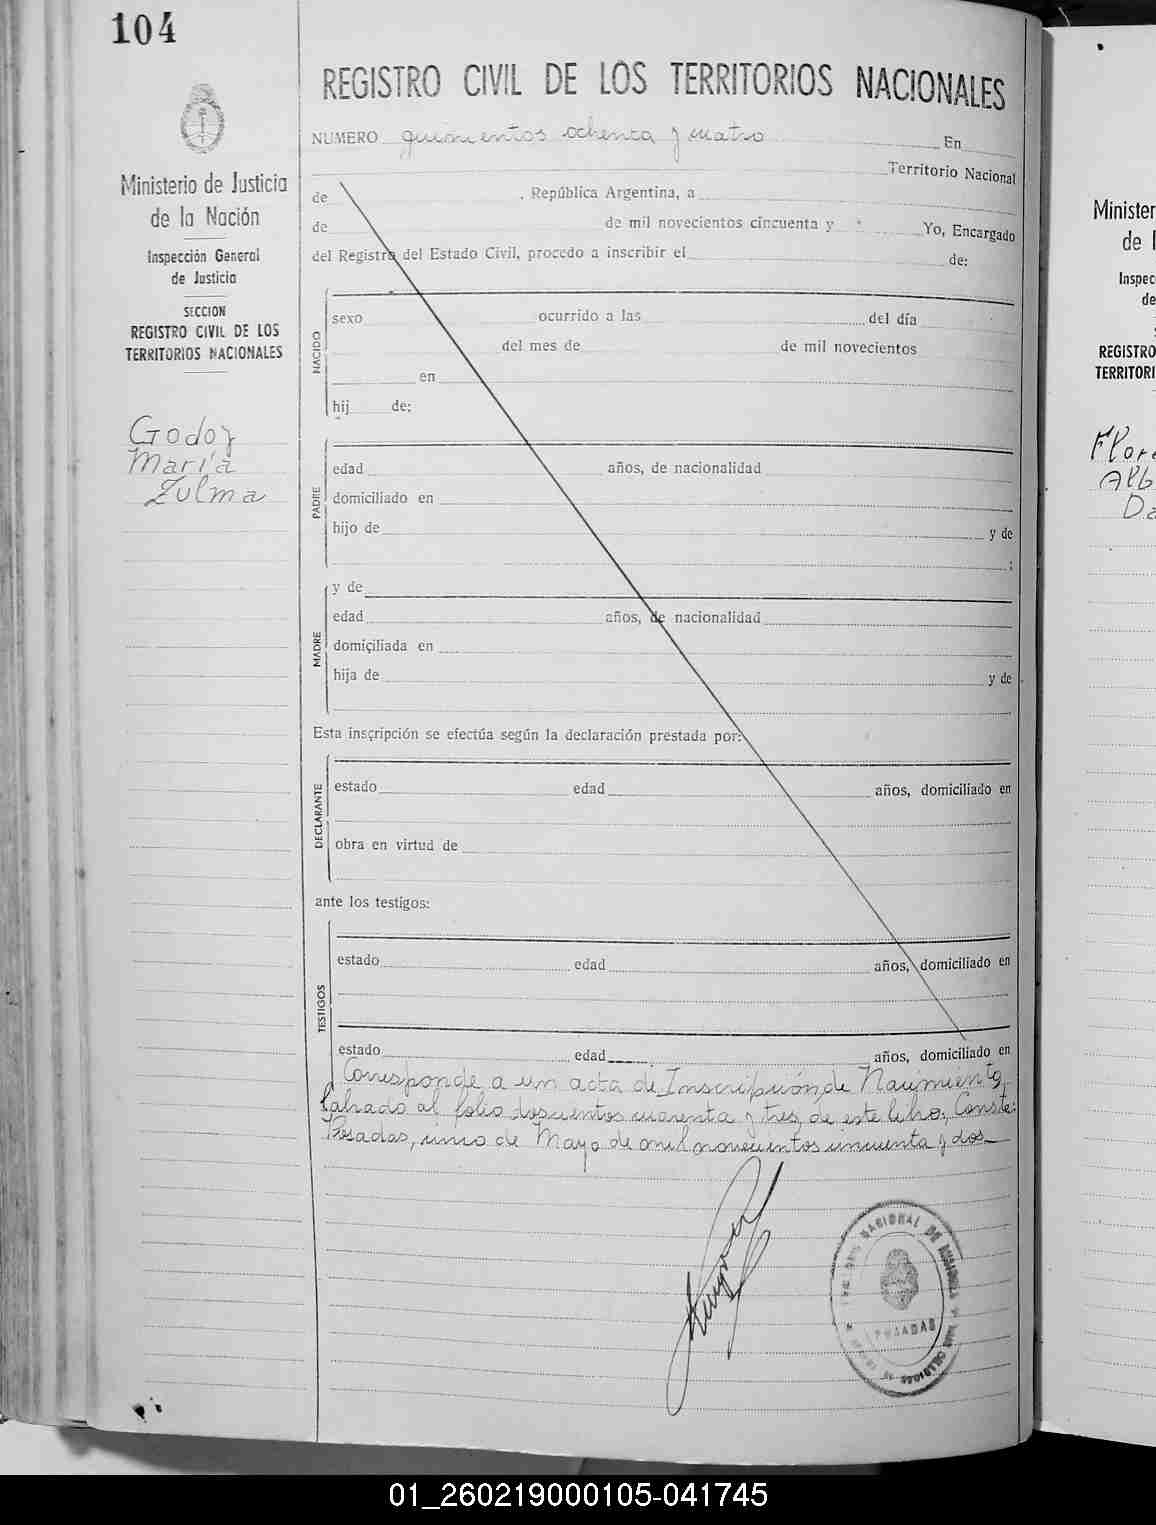 104
Ministerio de Justicia
de la Nación
Inspección General
de Justicia
SECCION
REGISTRO CIVIL DE LOS
TERRITORIOS NACIONALES
Godoy
María
Zulma
REGISTRO CIVIL DE LOS TERRITORIOS NACIONALES
NUMERO quinientos ochenta y cuatro En
Territorio Nacional
de , República Argentina, a
de de mil novecientos cincuenta y Yo, Encargado
del Registro del Estado Civil, procedo a inscribir el de:
NACIDO
sexo ocurrido a las del día
del mes de de mil novecientos
en
hij de:
PADRE
edad años, de nacionalidad
domiciliado en
hijo de y de
;
MADRE
y de
edad años, de nacionalidad
domiciliada en
hija de y de
Esta inscripción se efectúa según la declaración prestada por:
DECLARANTE
estado edad años, domiciliado en
obra en virtud de
ante los testigos:
TESTIGOS
estado edad años, domiciliado en
estado edad años, domiciliado en
Corresponde a un acta de Inscripción de Nacimiento,
labrado al folio doscientos cuarenta y tres de este libro, Conste:
Posadas, unio de Mayo de mil novecientos cincuenta y dos
POSADAS
Minister
de l
Inspec
de
REGISTRO
TERRITORI
Flore
Alb
Da
01_260219000105-041745